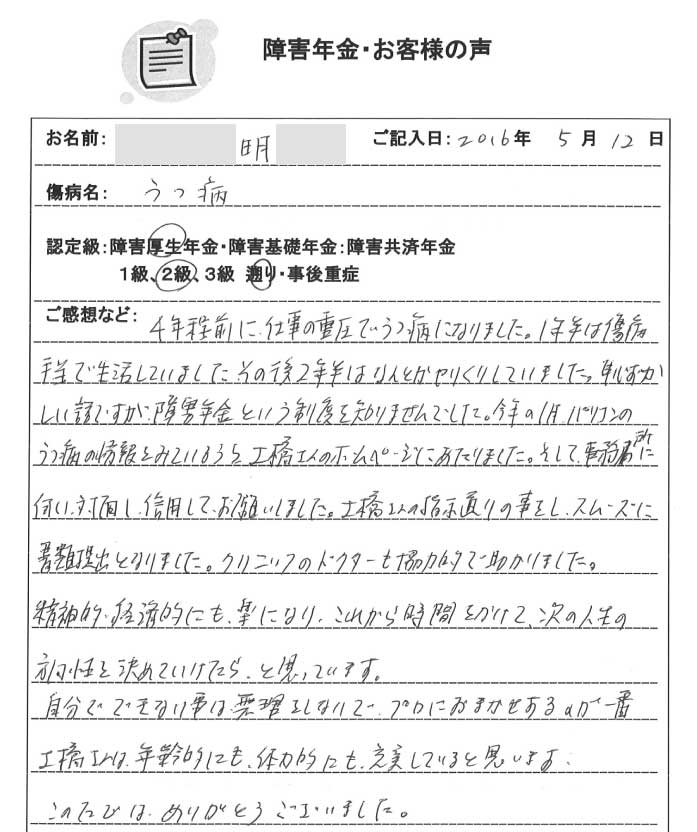 障害年金・お客様の声
お名前: 明 ご記入日:2016年 5月12日
傷病名: うつ病
認定級:障害厚生年金・障害基礎年金:障害共済年金
1級、2級、3級 遡り・事後重症
ご感想など: 4年程前に、仕事の重圧でうつ病になりました。1年半は傷病
手当で生活していました その後2年半はなんとかやりくりしていました。恥ずか
しい話ですが、障害年金という制度を知りませんでした。今年の1月パソコンの
うつ病の情報をみているうち、土橋さんのホームページにあたりました。そして、事務所に
伺い、対面し、信用して、お願いしました。土橋さんの指示通りの事をし、スムーズに
書類提出となりました。クリニックのドクターも協力的で助かりました。
精神的、経済的にも、楽になり、これから時間をかけて、次の人生の
方向性を決めていけたら、と思っています。
自分でできない事は無理をしないで、プロにおまかせするのが一番
土橋さんは、年齢的にも、体力的にも、充実していると思います。
このたびは、ありがとうございました。